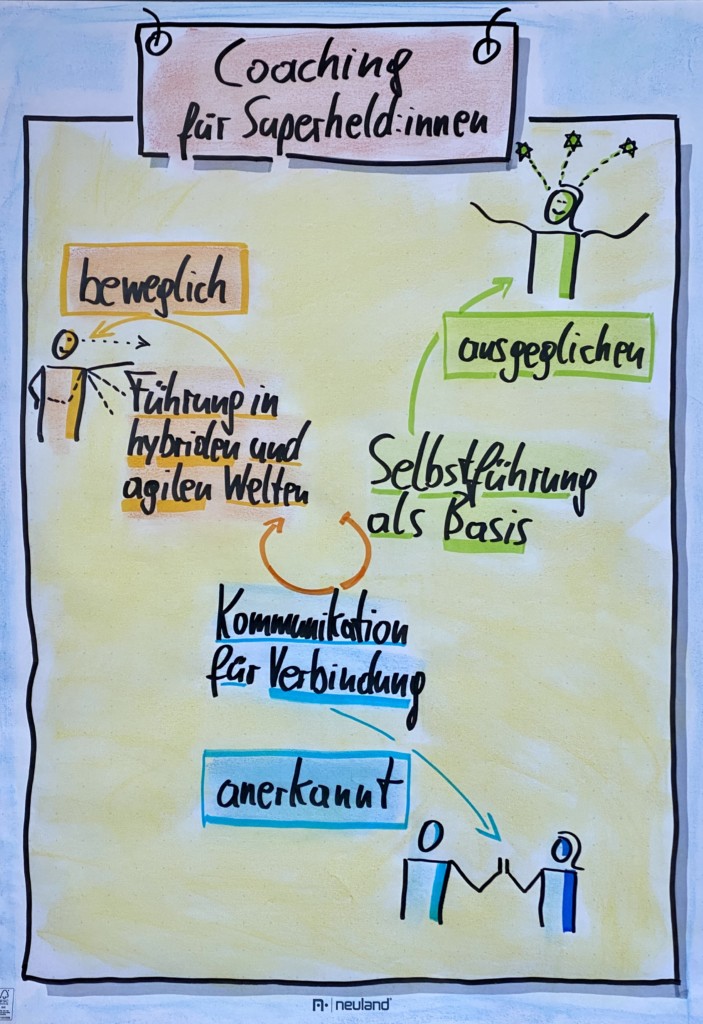 Coaching
für Superheld:innen
beweglich
Führung in
hybriden und
agilen Welten
ausgeglichen
Selbstführung
als Basis
Kommunikation
für Verbindung
anerkannt
neuland